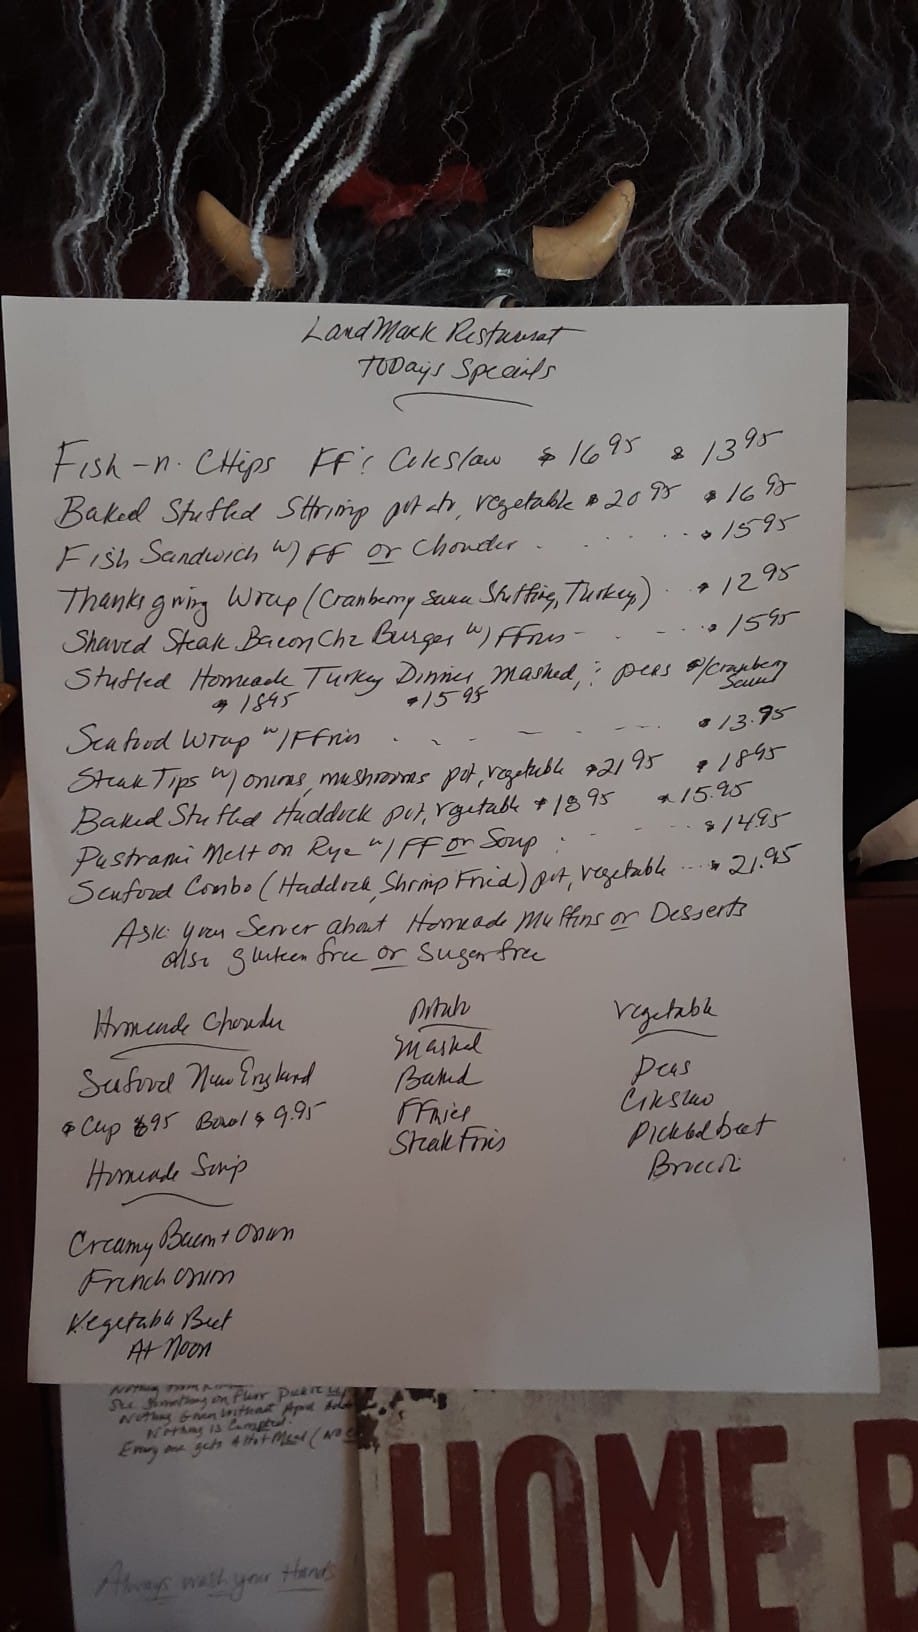 LandMark Restaurat
TODays Specials
Fish -n- CHips FF & Coleslaw $16.95 $13.95
Baked Stuffed SHrimp potato, vegetable $20.95 $16.95
Fish Sandwich w/ FF or Chowder - - - - - $15.95
Thanksgiving Wrap (Cranberry Sauce Stuffing, Turkey) - - $12.95
Shaved Steak Bacon Chz Burger w/ FFries - - - - $15.95
Stuffed Homeade Turkey Dinner, Mashed, & peas w/Cranberry Sauce
$18.95 $15.95
Seafood Wrap w/ FFries - - - - - - $13.95
Steak Tips w/ onions, mushrooms pot, vegetable $21.95 $18.95
Baked Stuffed Haddock pot, vegetable $18.95 $15.95
Pastrami Melt on Rye w/ FF or Soup - - - - $14.95
Seafood Combo (Haddock, Shrimp Fried) pot, vegetable ---- $21.95
Ask your Server about Homeade Muffins or Desserts
also gluteen free or Sugar free
Homeade Chowder
Seafood New England
$ Cup 8.95 Bowl $ 9.95
Homeade Soup
Creamy Bacon + Onion
French Onion
Vegetable Beef
At Noon
Potato
Mashed
Baked
FFries
Steak Fries
Vegetable
Peas
Coleslaw
Pickled beet
Broccoli
Nothing from
See Something on Floor Pick it up
Nothing Given without
Nothing is
Every one gets A Hot Meal (No
Always wash your Hands
HOME B